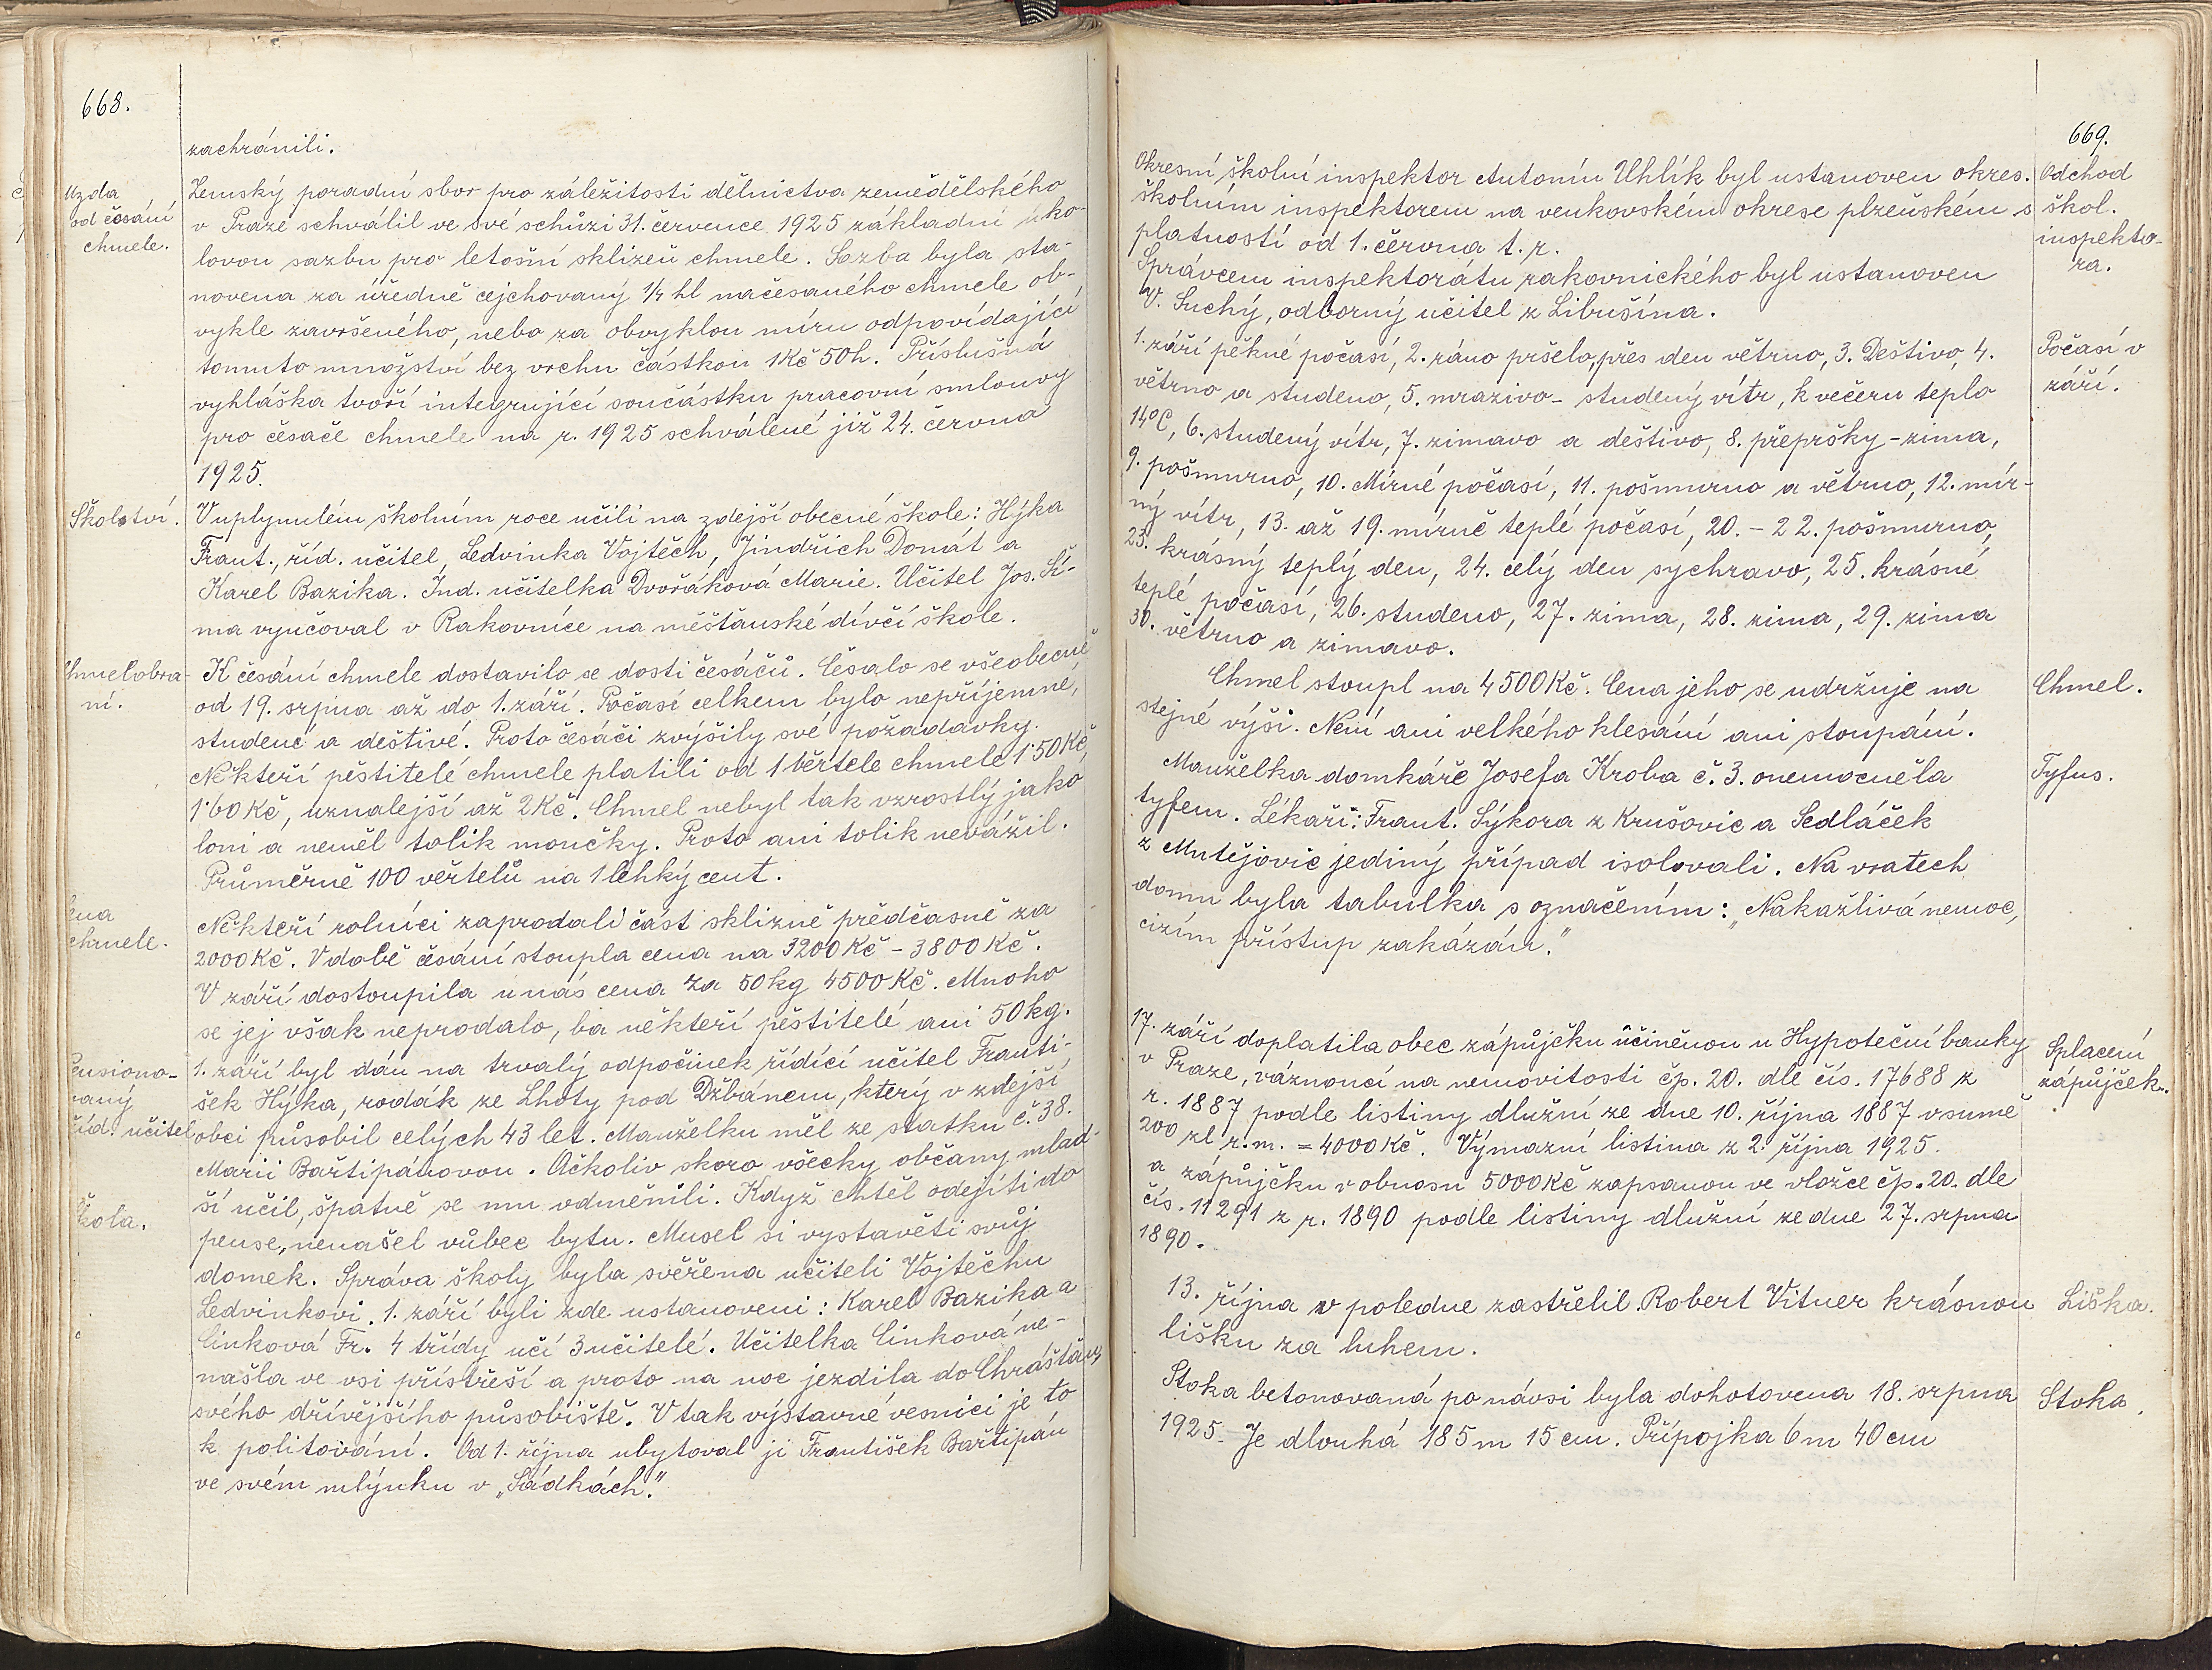 668.
zachránili.
Mzda
od česání
chmele.
Zemský poradní sbor pro záležitosti dělnictva zemědělského
v Praze schválil ve své schůzi 31. července 1925 základní úko-
lovou sazbu pro letošní sklizeň chmele. Sazba byla sta-
novena za úředně cejchovaný 1/4 hl načesaného chmele ob-
vykle završeného, nebo za obvyklou míru odpovídající
tomuto množství bez vrchu částkou 1Kč 50h. Příslušná
vyhláška tvoří integrující součástku pracovní smlouvy
pro česače chmele na r. 1925 schválené již 24. června
1925.
Školství.
V uplynulém školním roce učili na zdejší obecné škole: Hýka
Frant., říd. učitel, Ledvinka Vojtěch, Jindřich Donát a
Karel Bazika. Ind. učitelka Dvořáková Marie. Učitel Jos. Ší-
ma vyučoval v Rakovníce na měšťanské dívčí škole.
Chmelobra-
ní.
K česání chmele dostavilo se dosti česáčů. Česalo se všeobecně
od 19. srpna až do 1. září. Počasí celkem bylo nepříjemné,
studené a deštivé. Proto česáči zvýšily své požadavky.
Někteří pěstitelé chmele platili od 1 věrtele chmele 1·50 Kč,
1·60 Kč, uznalejší až 2 Kč. Chmel nebyl tak vzrostlý jako
loni a neměl tolik moučky. Proto ani tolik nevážil.
Průměrně 100 věrtelů na 1 lehký cent.
Cena
chmele.
Někteří rolníci zaprodali část sklizně předčasně za
2000 Kč. V době česání stoupla cena na 3200 Kč – 3800 Kč.
V září dostoupila u nás cena za 50 kg 4500 Kč. Mnoho
se jej však neprodalo, ba někteří pěstitelé ani 50 kg.
Pensiono-
vaný
říd. učitel
1. září byl dán na trvalý odpočinek řídící učitel Franti-
šek Hýka, rodák ze Lhoty pod Džbánem, který v zdejší
obci působil celých 43 let. Manželku měl ze statku č. 38.
Marii Bařtipánovou. Ačkoliv skoro všecky občany mlad-
ší učil, špatně se mu odměnili. Když chtěl odejíti do
pense, nenašel vůbec bytu. Musel si vystavěti svůj
Škola.
domek. Správa školy byla svěřena učiteli Vojtěchu
Ledvinkovi. 1. září byli zde ustanoveni: Karel Bazika a
Cinková Fr. 4 třídy učí 3 učitelé. Učitelka Cinková ne-
našla ve vsi přístřeší a proto na noc jezdila do Chrášťan,
svého dřívějšího působiště. V tak výstavné vesnici je to
k politování. Od 1. října ubytoval ji František Bařtipán
ve svém mlýnku v „Sádkách."
669.
Okresní školní inspektor Antonín Uhlík byl ustanoven okres.
školním inspektorem na venkovském okrese plzeňském s
platností od 1. června t. r.
Správcem inspektorátu rakovnického byl ustanoven
V. Suchý, odborný učitel z Libušína.
Odchod
škol.
inspekto-
ra.
1. září pěkné počasí, 2. ráno pršelo, přes den větrno, 3. Deštivo, 4.
větrno a studeno, 5. mrazivo – studený vítr, k večeru teplo
14°C, 6. studený vítr, 7. zimavo a deštivo, 8. přepršky – zima,
9. pošmurno, 10. Mírné počasí, 11. pošmurno a větrno, 12. mír-
ný vítr, 13. až 19. mírně teplé počasí, 20. – 22. pošmurno,
23. krásný teplý den, 24. celý den sychravo, 25. krásné
teplé počasí, 26. studeno, 27. zima, 28. zima, 29. zima
30. větrno a zimavo.
Počasí v
září.
Chmel stoupl na 4500 Kč. Cena jeho se udržuje na
stejné výši. Není ani velkého klesání ani stoupání.
Chmel.
Manželka domkáře Josefa Kroba č. 3. onemocněla
tyfem. Lékaři: Frant. Sýkora z Krušovic a Sedláček
z Mutějovic jediný případ isolovali. Na vratech
domu byla tabulka s označením: „Nakažlivá nemoc,
cizím přístup zakázán."
Tyfus.
17. září doplatila obec zápůjčku učiněnou u Hypoteční banky
v Praze, váznoucí na nemovitosti čp. 20. dle čís. 17688 z
r. 1887 podle listiny dlužní ze dne 10. října 1887 v sumě
200 zl. r. m. = 4000 Kč. Výmazní listina z 2. října 1925.
a zápůjčku v obnosu 5000 Kč zapsanou ve vložce čp. 20. dle
čís. 11291 z r. 1890 podle listiny dlužní ze dne 27. srpna
1890.
Splacení
zápůjček.
13. října v poledne zastřelil Robert Vitner krásnou
lišku za luhem.
Liška.
Stoka betonovaná po návsi byla dohotovena 18. srpna
1925. Je dlouhá 185 m 15 cm. Přípojka 6 m 40 cm
Stoka.